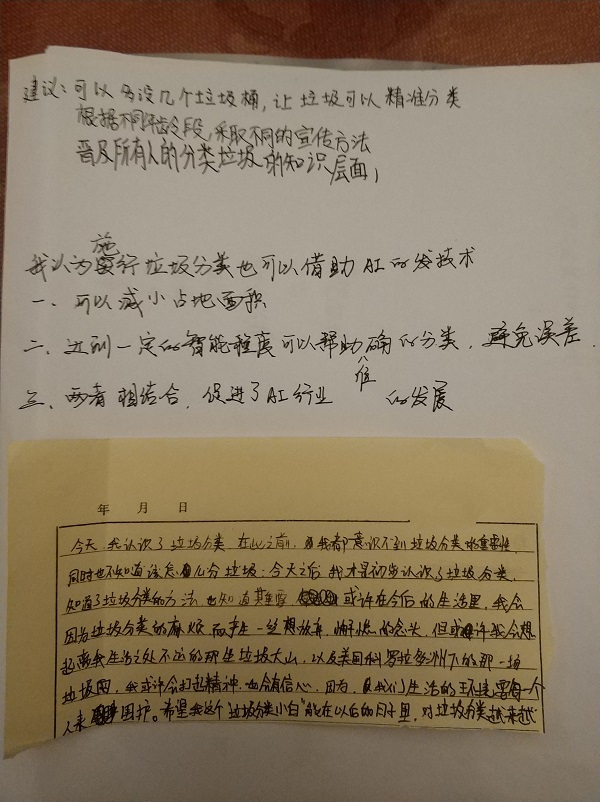 建议：可以多设几个垃圾桶，让垃圾可以精准分类
根据不同年龄段，采取不同的宣传方法
普及所有人的分类垃圾的知识层面，
我认为施行垃圾分类也可以借助AI的发技术
一、可以减小占地面积
二、达到一定的智能程度可以帮助准确的分类，避免误差.
三、两者相结合，促进了AI行业的发展
年 月 日
今天 我认识了垃圾分类 在此之前，我都意识不到垃圾分类的重要性，
同时也不知道该怎么分垃圾：今天之后 我才是初步认识了垃圾分类，
知道了垃圾分类的方法 也知道其重要 或许在今后的生活里，我会
因为垃圾分类的麻烦而产生一丝想放弃、懈怠的念头，但或许我会想
起离我生活之处不远的那座垃圾大山，以及美国科罗拉多州下的那一场
垃圾雨，我或许会打起精神，也会有信心，因为，我们生活的环境需要每一个
人来维护。希望我这个"垃圾分类小白"能在以后的日子里，对垃圾分类越来越